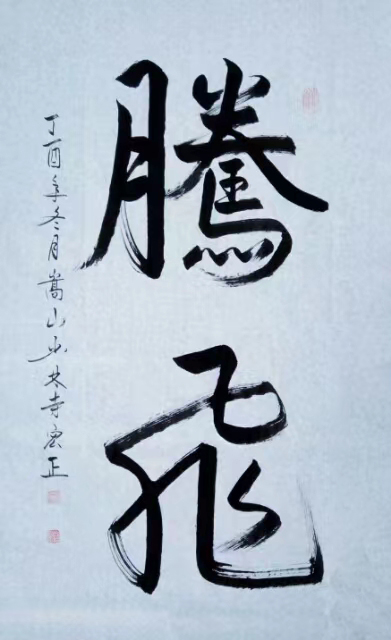 騰飛
丁酉年冬月嵩山少林寺宏正